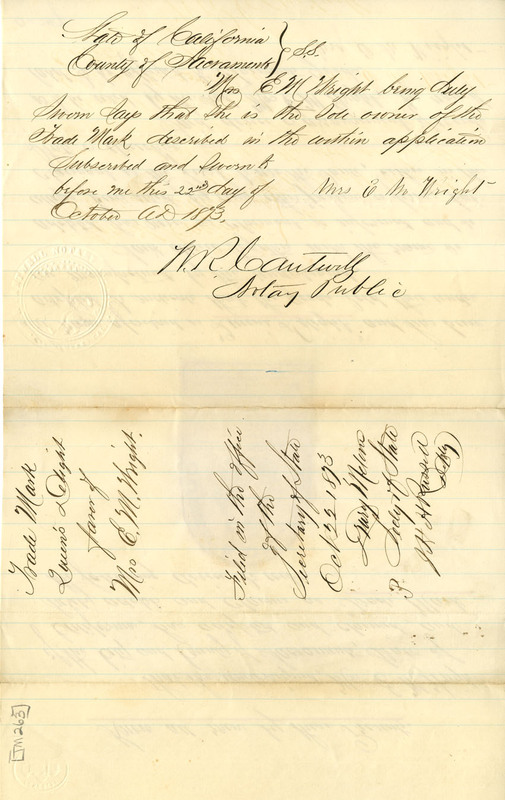 State of California
County of Sacramento } S.S.
Mrs E M Wright being duly
sworn says that She is the Sole owner of the
Trade Mark described in the within application
Subscribed and Sworn to
before me this 22nd day of
October AD 1873.
Mrs E M Wright
W. R. Cantwell
Notary Public
Trade Mark
Queen's Delight
favor of
Mrs E. M. Wright.
Filed in the office
of the
Secretary of State
Oct 22 1873
Drury Melone
Secty of State
Russell
Dpty
TM 263